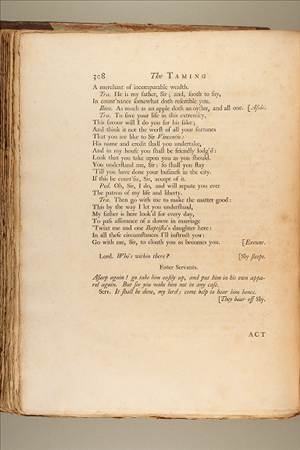 308 The TAMING
A merchant of incomparable wealth.
Tra. He is my father, Sir; and, sooth to say,
In count'nance somewhat doth resemble you.
Bion. As much as an apple doth an oyster, and all one. [Aside.
Tra. To save your life in this extremity,
This favour will I do you for his sake;
And think it not the worst of all your fortunes
That you are like to Sir Vincentio:
His name and credit shall you undertake,
And in my house you shall be friendly lodg'd:
Look that you take upon you as you should.
You understand me, Sir: so shall you stay
'Till you have done your business in the city.
If this be court'sie, Sir, accept of it.
Ped. Oh, Sir, I do, and will repute you ever
The patron of my life and liberty.
Tra. Then go with me to make the matter good:
This by the way I let you understand,
My father is here look'd for every day,
To pass assurance of a dowre in marriage
'Twixt me and one Baptista's daughter here:
In all these circumstances I'll instruct you:
Go with me, Sir, to cloath you as becomes you. [Exeunt.
Lord. Who's within there? [Sly sleeps.
Enter Servants.
Asleep again! go take him easily up, and put him in his own appa-
rel again. But see you wake him not in any case.
Serv. It shall be done, my lord; come help to bear him hence.
[They bear off Sly.
ACT